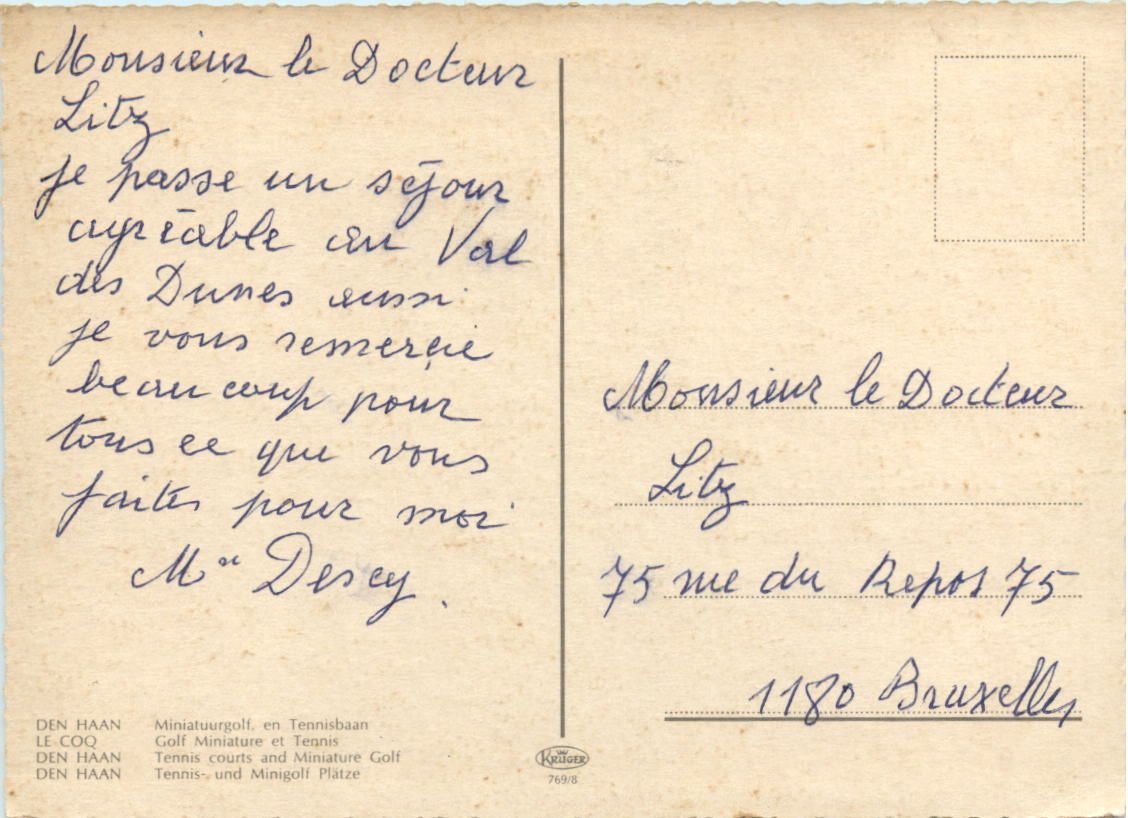 Monsieur le Docteur
Litz
je passe un séjour
agréable au Val
des Dunes aussi
je vous remercie
beaucoup pour
tous ce que vous
faites pour moi
Mme Descy.
DEN HAAN Miniatuurgolf, en Tennisbaan
LE COQ Golf Miniature et Tennis
DEN HAAN Tennis courts and Miniature Golf
DEN HAAN Tennis- und Minigolf Plätze
KRÜGER
769/8
Monsieur le Docteur
Litz
75 rue du Repos 75
1180 Bruxelles